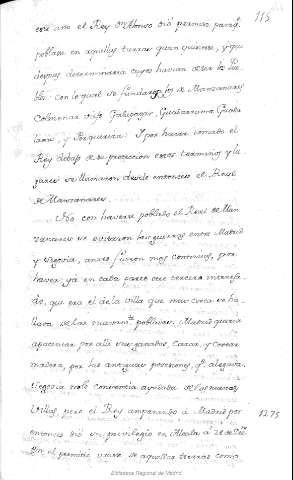 115
este año el Rey Dn Alonso dió permiso para q.
poblase en aquellas tierras quien quisiese, y que
despues determinaria cuyos havian de ser los Pue-
blos: con lo qual se fundaron los de Manzanares
Colmenar viejo Galapagar, Guadarrama Guada-
lix, y Porquerizas. Y por haver tomado el
Rey debajo de su proteccion estos terminos y lu-
gares se llamaron desde entonces el Real
de Manzanares.
No con haverse poblado el Real de Man-
zanares se evitaron las guerras entre Madrid
y Segovia, antes fueron mas continuas, por
haver ya en cada parte un tercero interesa-
do, que era el de la villa que mas cerca se ha-
llava de las nuevamte pobladas. Madrid queria
apacentar por alli sus ganados, cazar, y cortar
madera, por las antiguas posesiones, q.e alegava.
Segovia no lo consentia ayudada de las nuevas
Villas, pero el Rey amparando á Madrid por
1275
entonces dió un privilegio en Alcala á 28 de
en el permitio usase de aquellas tierras como
Biblioteca Regional de Madrid